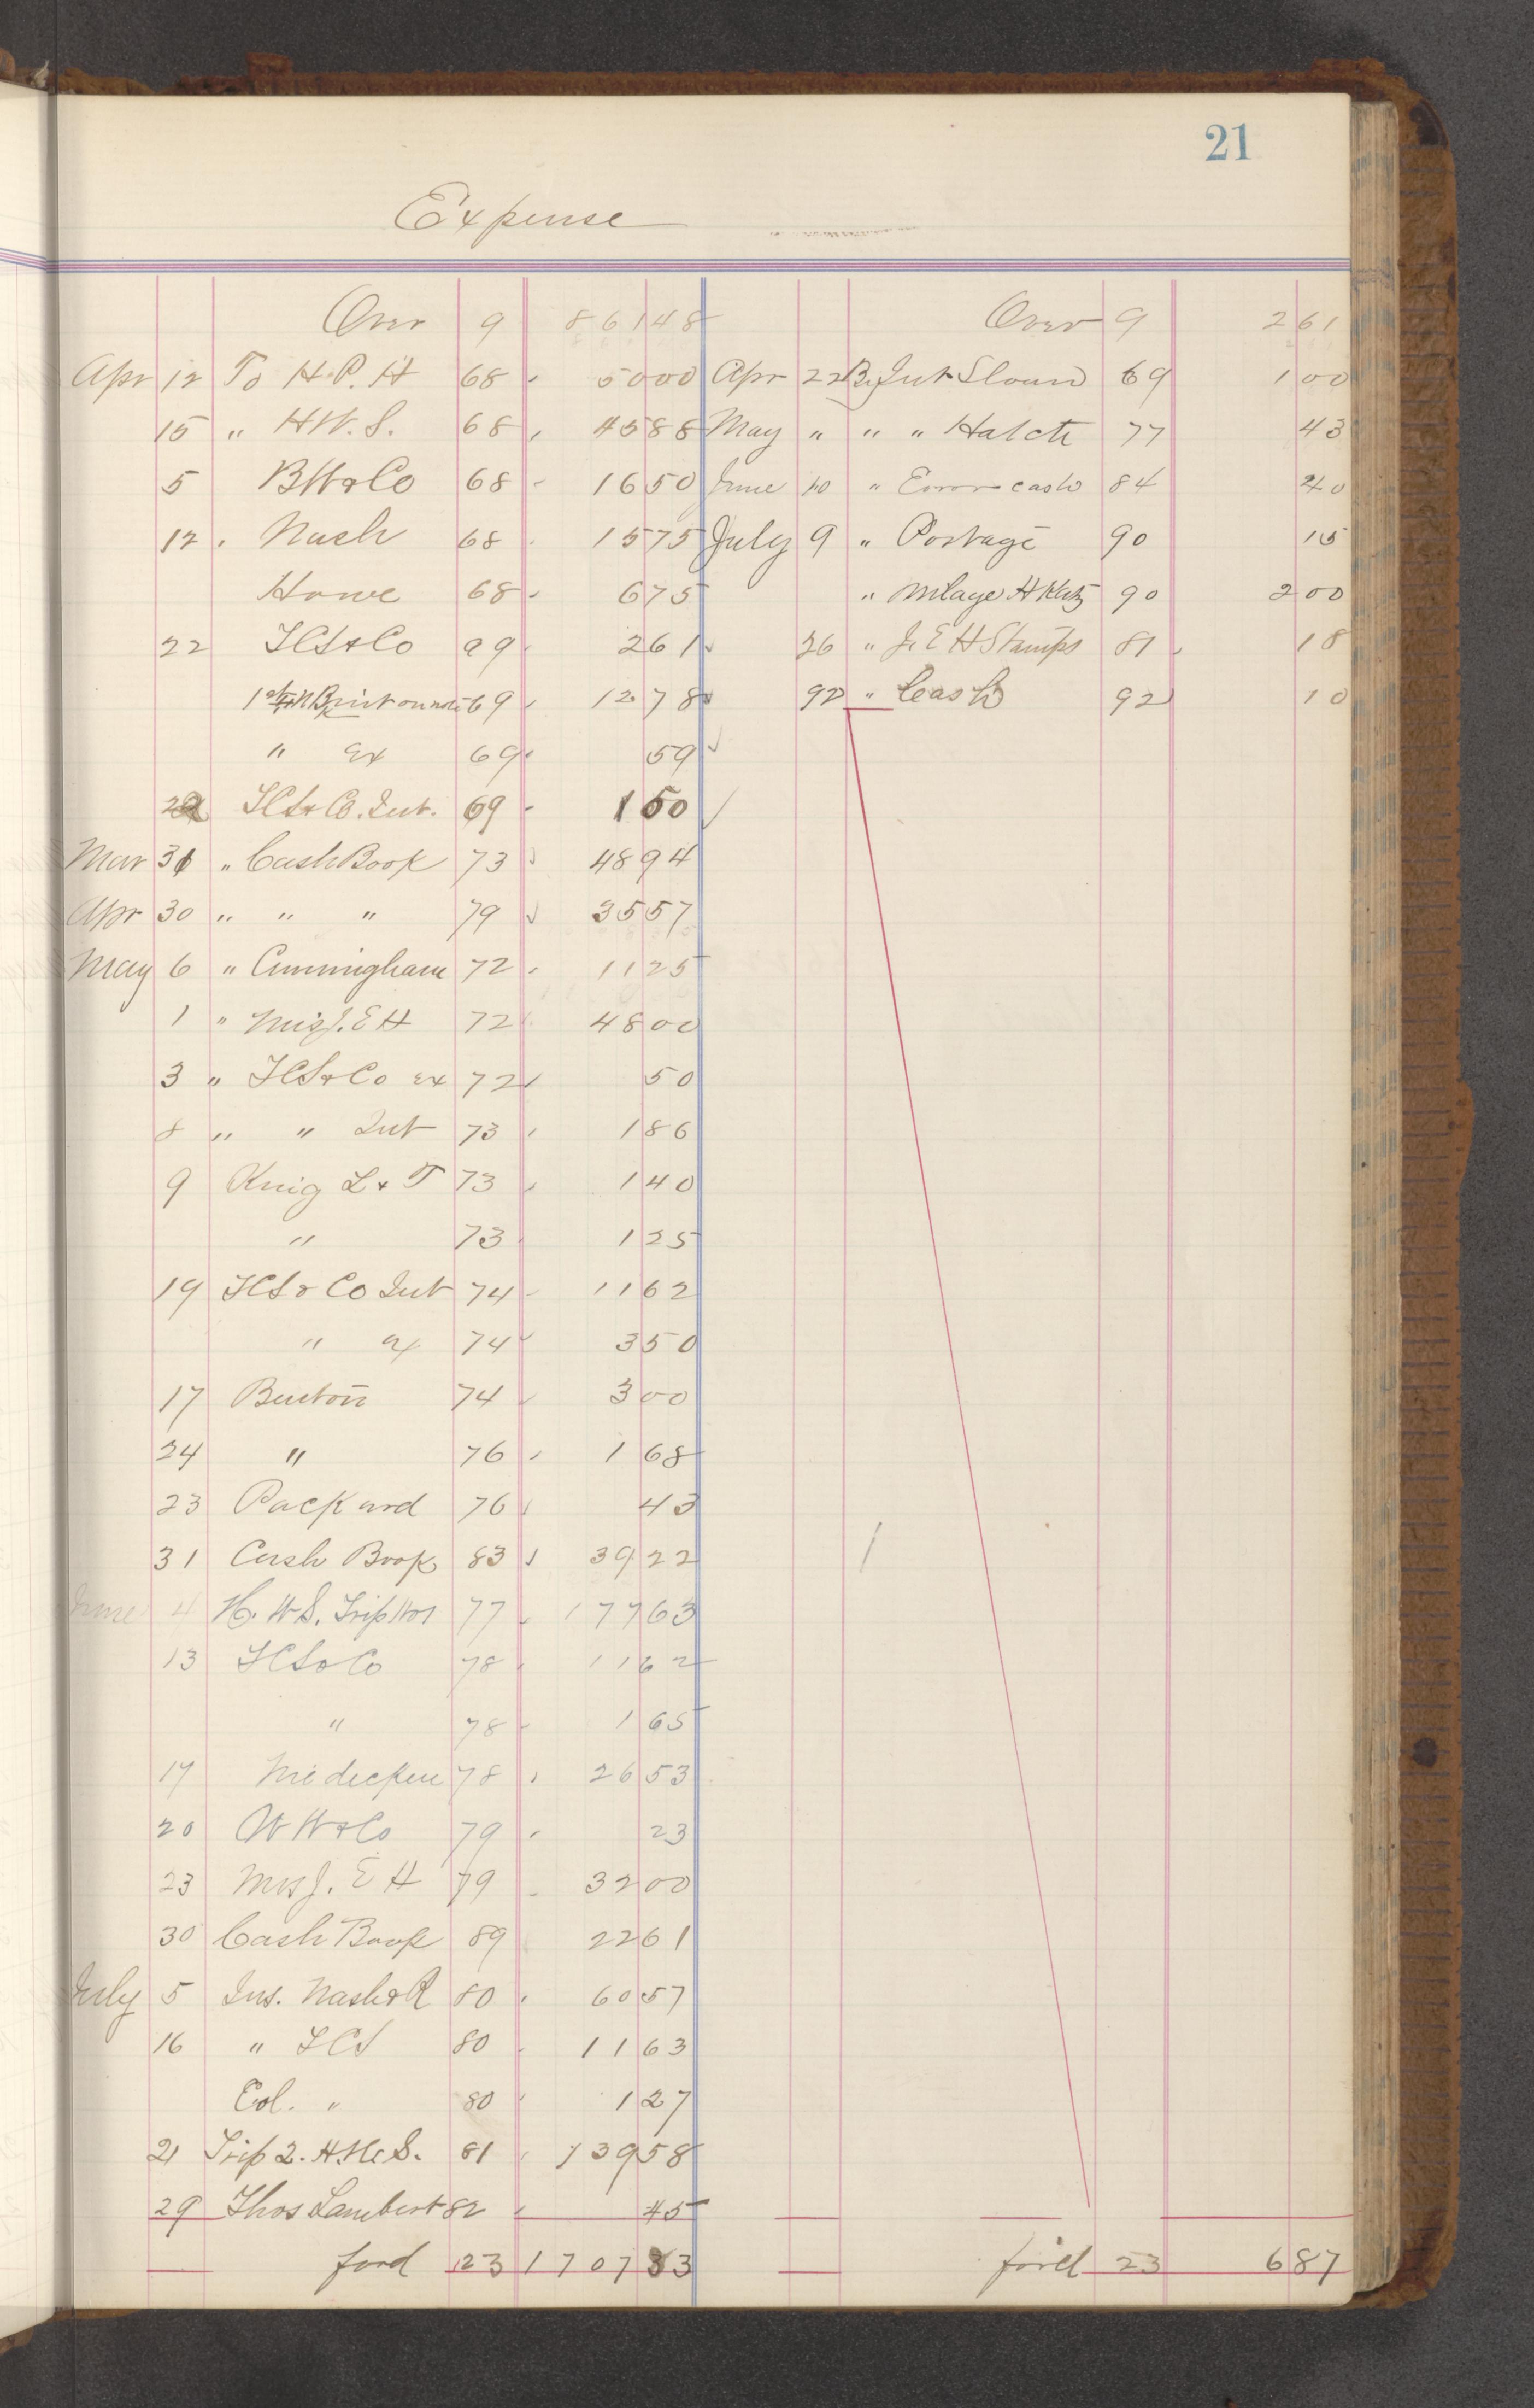 21
Expense
Over 9 861 48 Over 9 2 61
Apr 12 To H.P.H 68 50 00 Apr 22 By Int Sloan 69 1 00
15 " H.W.S. 68 45 88 May " " " Hatch 77 43
5 BH & Co 68 16 50 June 10 " Error cash 84 20
12 Nash 68 15 75 July 9 " Postage 90 15
Howe 68 6 75 " Milage H Katz 90 2 00
22 & Co 69 2 61 26 " J.E H Stamps 81 18
1st int on note 69 12 78 92 " Cash 92 10
" Ex 69 59
& Co. Int. 69 1 50
Mar 31 " Cash Book 73 48 94
Apr 30 " " " 79 35 57
May 6 " Cunningham 72 11 25
1 " J. E H 72 48 00
3 " & Co Ex 72 50
8 " " Int 73 1 86
9 King L & T 73 1 40
" 73 1 25
19 & Co Int 74 11 62
" Ex 74 3 50
17 Burton 74 3 00
24 " 76 1 68
23 Packard 76 43
31 Cash Book 83 39 22
June 4 H. W S. Trip 77 177 63
13 & Co 78 11 62
" 78 1 65
17 78 26 53
20 W H & Co 79 23
23 Mrs J. E H 79 32 00
30 Cash Book 89 22 61
July 5 Ins. Nash & R 80 60 57
16 " 80 11 63
Col. " 80 1 27
21 Trip 2. H.W.S. 81 139 58
29 Thos Lambert 82 45
ford 23 1707 33 ford 23 6 87